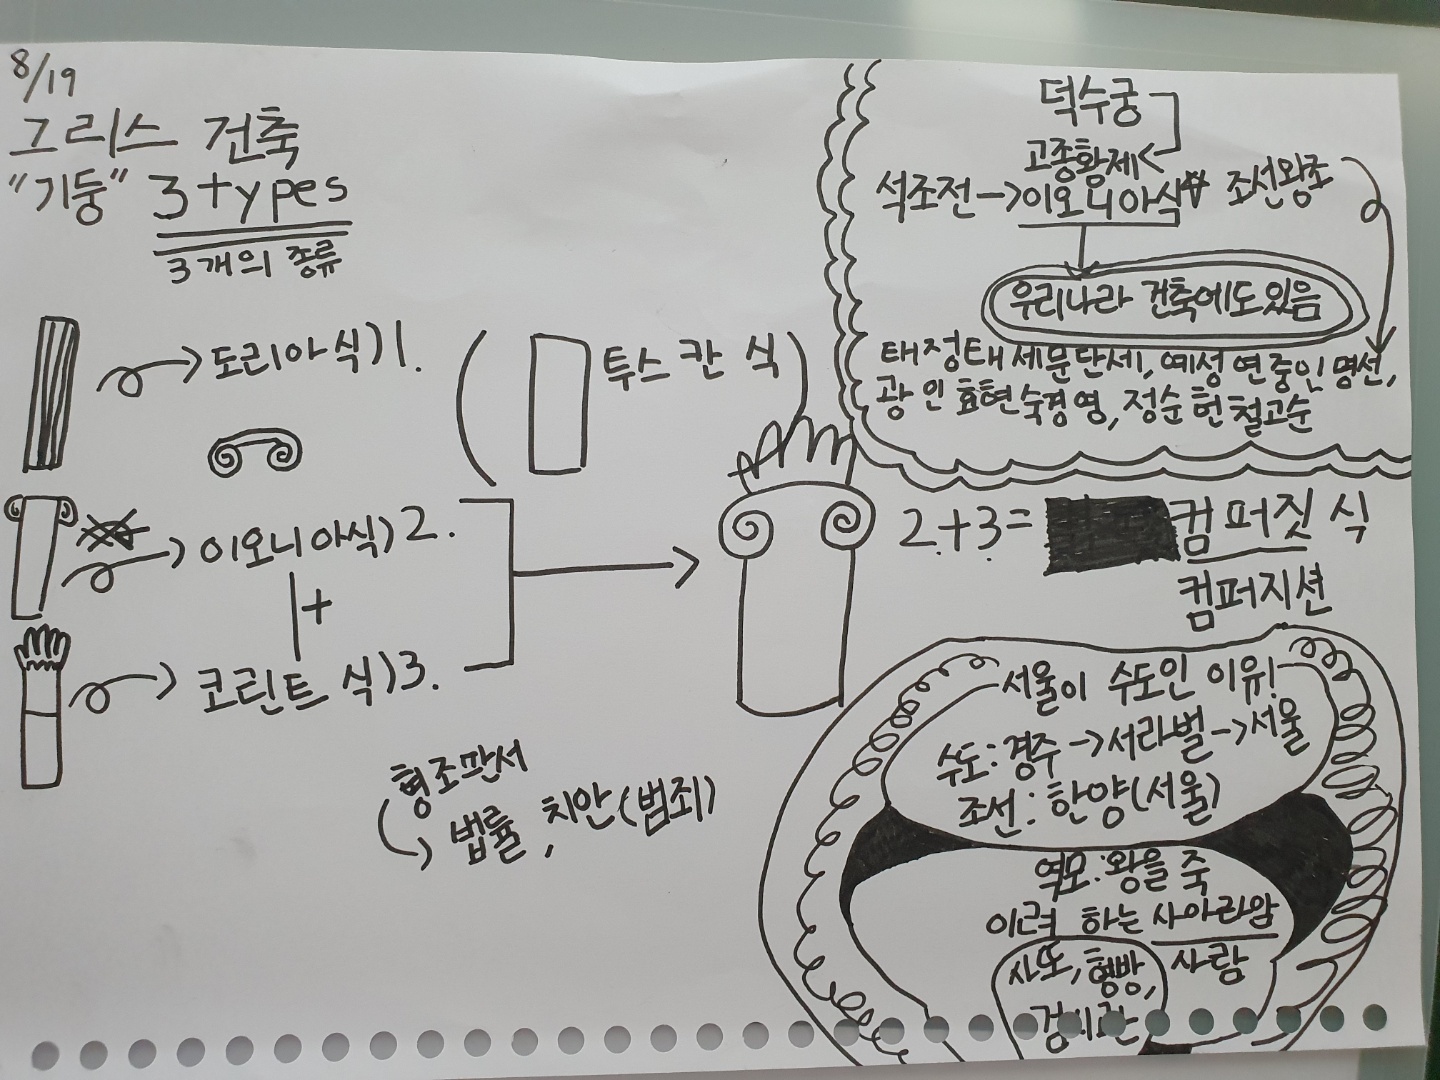 8/19
그리스 건축
"기둥" 3 types
3개의 종류
도리아 식)1.
(투스 칸 식)
이오니아식)2.
+
코린트 식)3.
형조판서
법률, 치안(범죄)
덕수궁
고종황제
석조전→이오니아식 조선왕조
우리나라 건축에도있음
태정태세문단세, 예성연중인명선,
광인효현숙경영, 정순헌철고순
2.+3.= 컴퍼짓 식
컴퍼지션
서울이 수도인 이유!
수도:경주→서라벌→서울
조선:한양(서울)
역모:왕을 죽
이려 하는 사아라암
사람
사또, 형방,